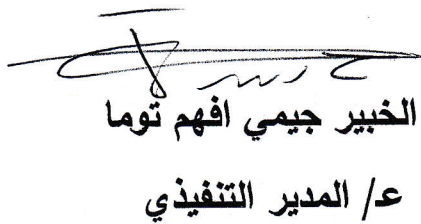 الخبير جيمي افهم توما
عـ/ المدير التنفيذي